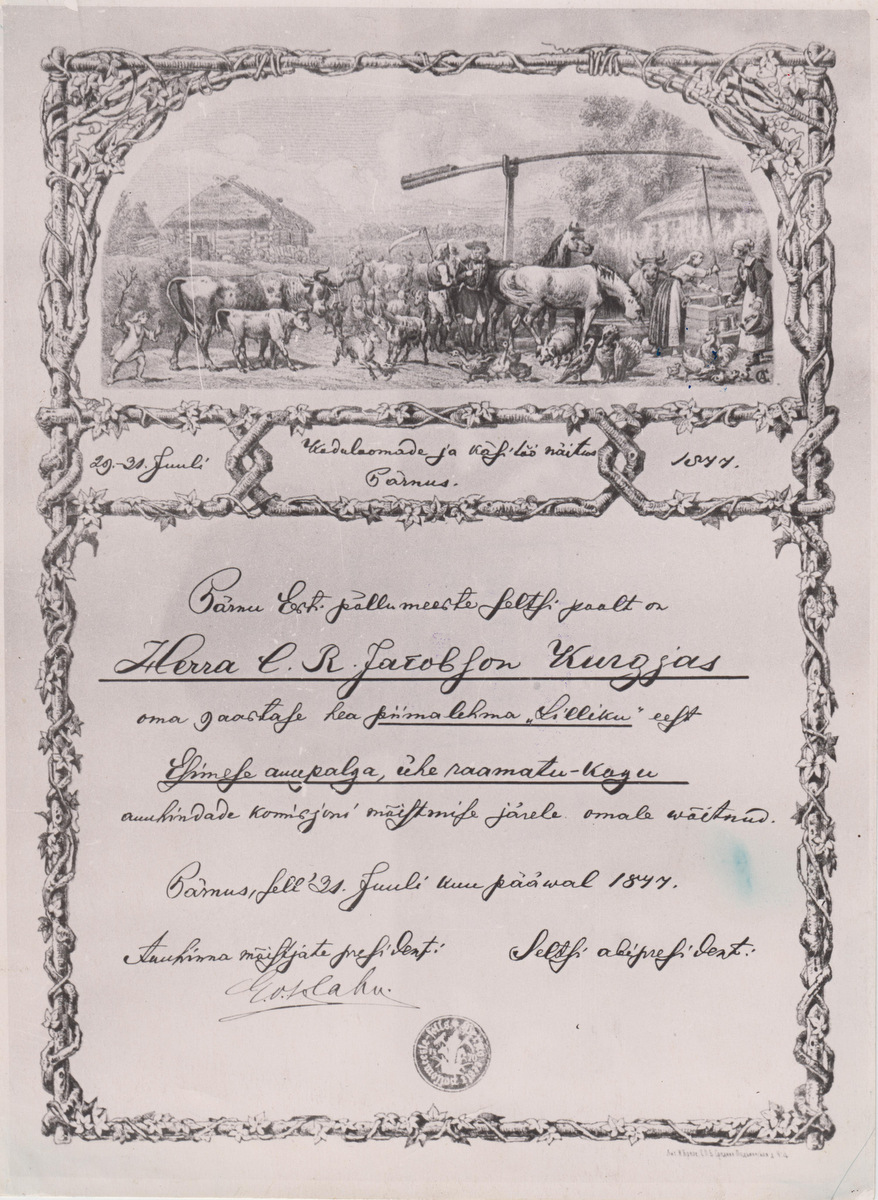 29.-31. Juuli
Kodulaomade ja käsitöö näitus
Pärnus.
1877.
Pärnu Esti põllumeeste seltsi poolt on
Herra C. R. Jacobson Kurgjas
oma 9 aastase hea piimalehma „Lilliku“ eest
Esimese auupalga, ühe raamatu-kogu
auuhindade komisjoni mõistmise järele omale wõitnud.
Pärnus, sell 31. Juuli kuu pääwal 1877.
Auuhinna mõistjate president:
Seltsi abipresident: